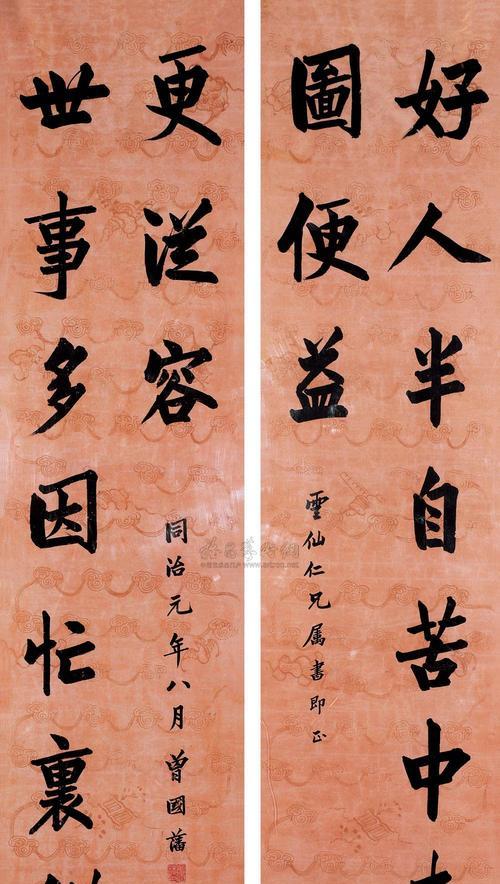 好人半自苦中
圖便益
雲仙仁兄属書即正
世事多因忙裏
更從容
同治元年八月曾國藩